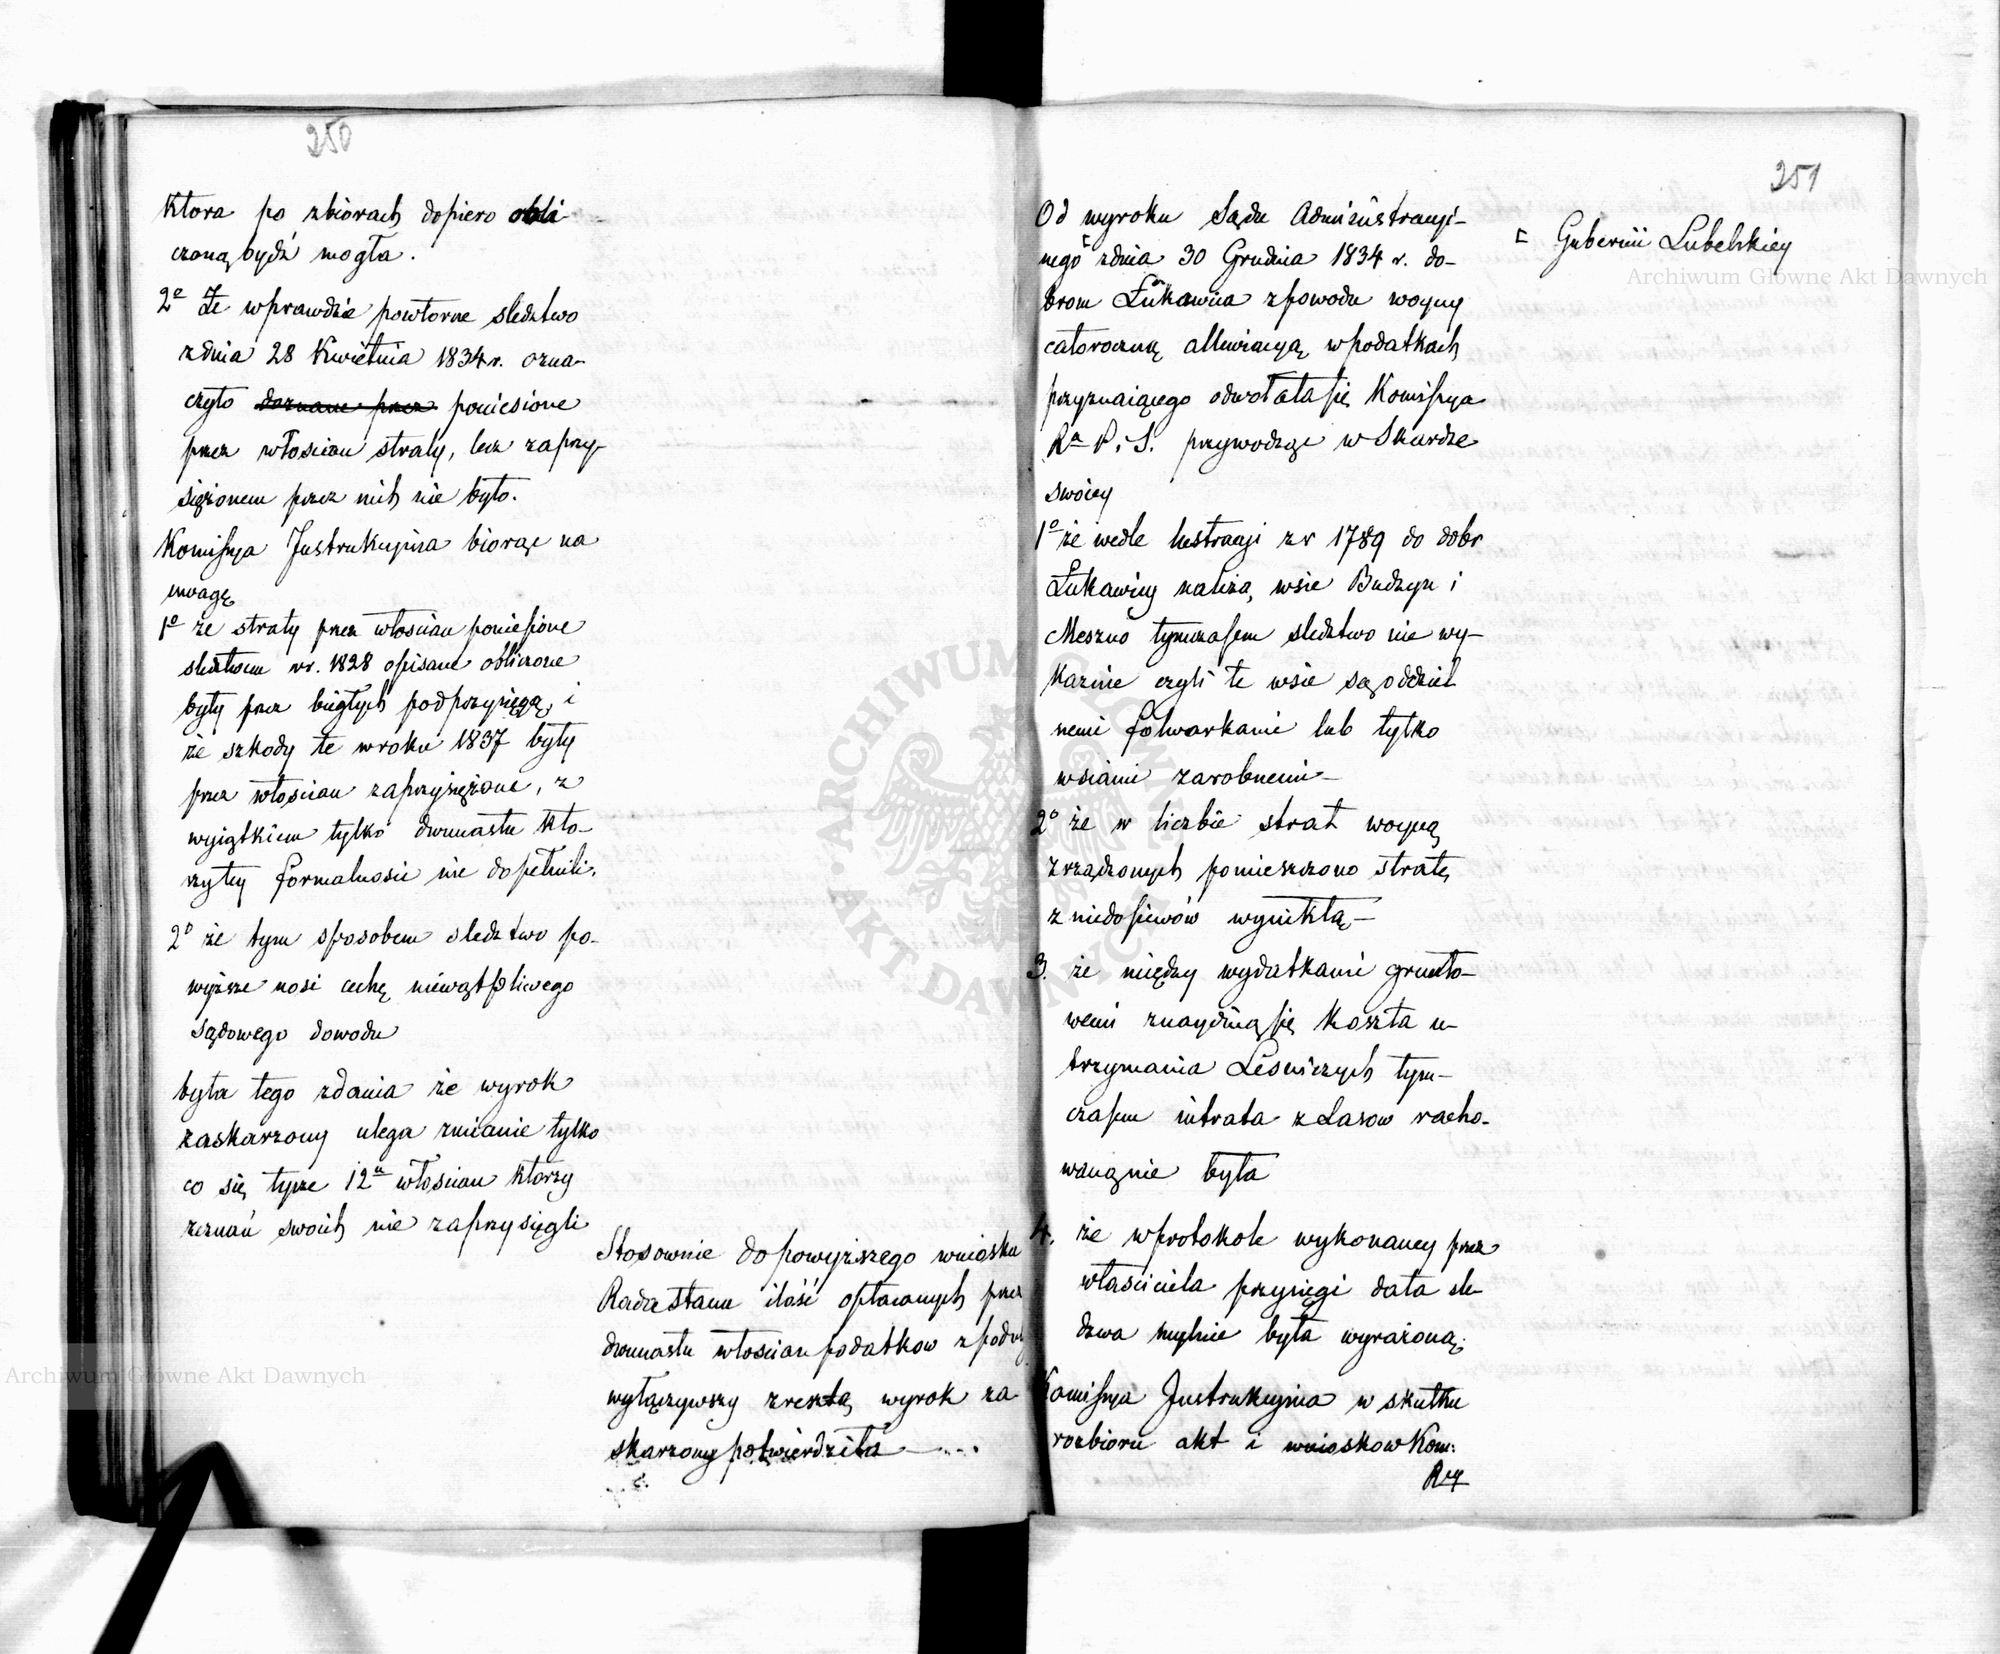 250
Ktora po zbiorach dopiero obli
czoną bydź mogła.
2o Że wprawdzie powtorne sledztwo
zdnia 28 Kwietnia 1834 r. ozna-
czyło doznane przez poniesione
przez włościan straty, lecz zaprzy-
siężonem przez nich nie było.
Komissya Instrukcyjna biorąc na
uwagę
1o że straty przez włościan poniesione
sledztwem w r. 1828 opisane obliczone
były przez biegłych pod przysięgą, i
że szkody te w roku 1837 były
przez włościan zaprzysiężone, z
wyiątkiem tylko dwunastu kto-
rzy tey formalnosci nie dopełnili.
2o że tym sposobem sledztwo po-
wyższe nosi cechę niewątpliwego
sądowego dowodu
była tego zdania że wyrok
zaskarzony ulega zmianie tylko
co się tycze 12u włościan ktorzy
zeznań swoich nie zaprzysięgli
Stosownie do powyższego wniosku
Rada Stanu ilość opłacanych przez
dwunastu włościan podatkow z pod
wyłączywszy zresztą wyrok za
skarzony potwierdziła
251
Od wyroku Sądu Administracyi-
nego zdnia 30 Grudnia 1834 r. do-
Gubernii Lubelskiey
brom Łukawica z powodu woyny
całoroczną allewiacyą w podatkach
przyznaiącego odwołała się Komissya
Ra P. i S. przywodząc w Skardze
swoiey
1o że wedle lustracyi z r 1789 do dobr
Łukawicy należą wsie Budzyn i
Meszno tymczasem sledztwo nie wy-
kaznie czyli te wsie są oddziel
nemi folwarkami lub tylko
wsiami zarobnemi
2o że w liczbie strat woyną
zrządzonych pomieszczono stratę
z niedosiewów wynikłą
3. że między wydatkami grunto-
wemi znayduią się koszta u-
trzymania Leśniczych tym-
czasem intrata z Lasow racho-
waną nie była
4. że w protokole wykonaney przez
własciciela przysięgi data sle-
dztwa mylnie była wyrażoną.
Komissya Instrukcyjna w skutku
rozbioru akt i wnioskow Kom:
Rzą
Archiwum Główne Akt Dawnych
Archiwum Główne Akt Dawnych
ARCHIWUM GŁÓWNE AKT DAWNYCH